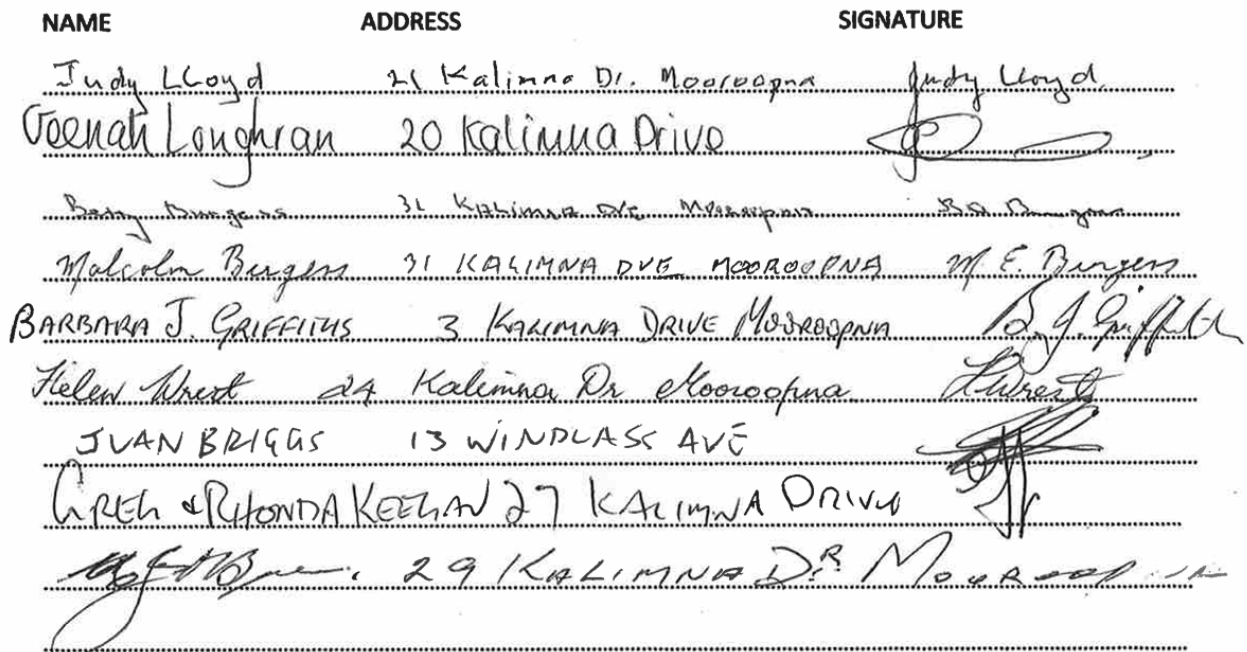 NAME ADDRESS SIGNATURE
Judy Lloyd 21 Kalimna Dr. Mooroopna Judy Lloyd.
Loughran 20 Kalimna Drive
Burgess 31 KALIMNA DVE MOOROOPNA
Malcolm Burgess 31 KALIMNA DVE MOOROOPNA M. E. Burgess
BARBARA J. GRIFFITHS 3 KALIMNA DRIVE MOOROOPNA B. J. Griffith
Helen Wrest 24 Kalimna Dr Mooroopna HWrest
JUAN BRIGGS 13 WINDLASS AVE
GREG & RHONDA KEEGAN 27 KALIMNA DRIVE
29 KALIMNA DR